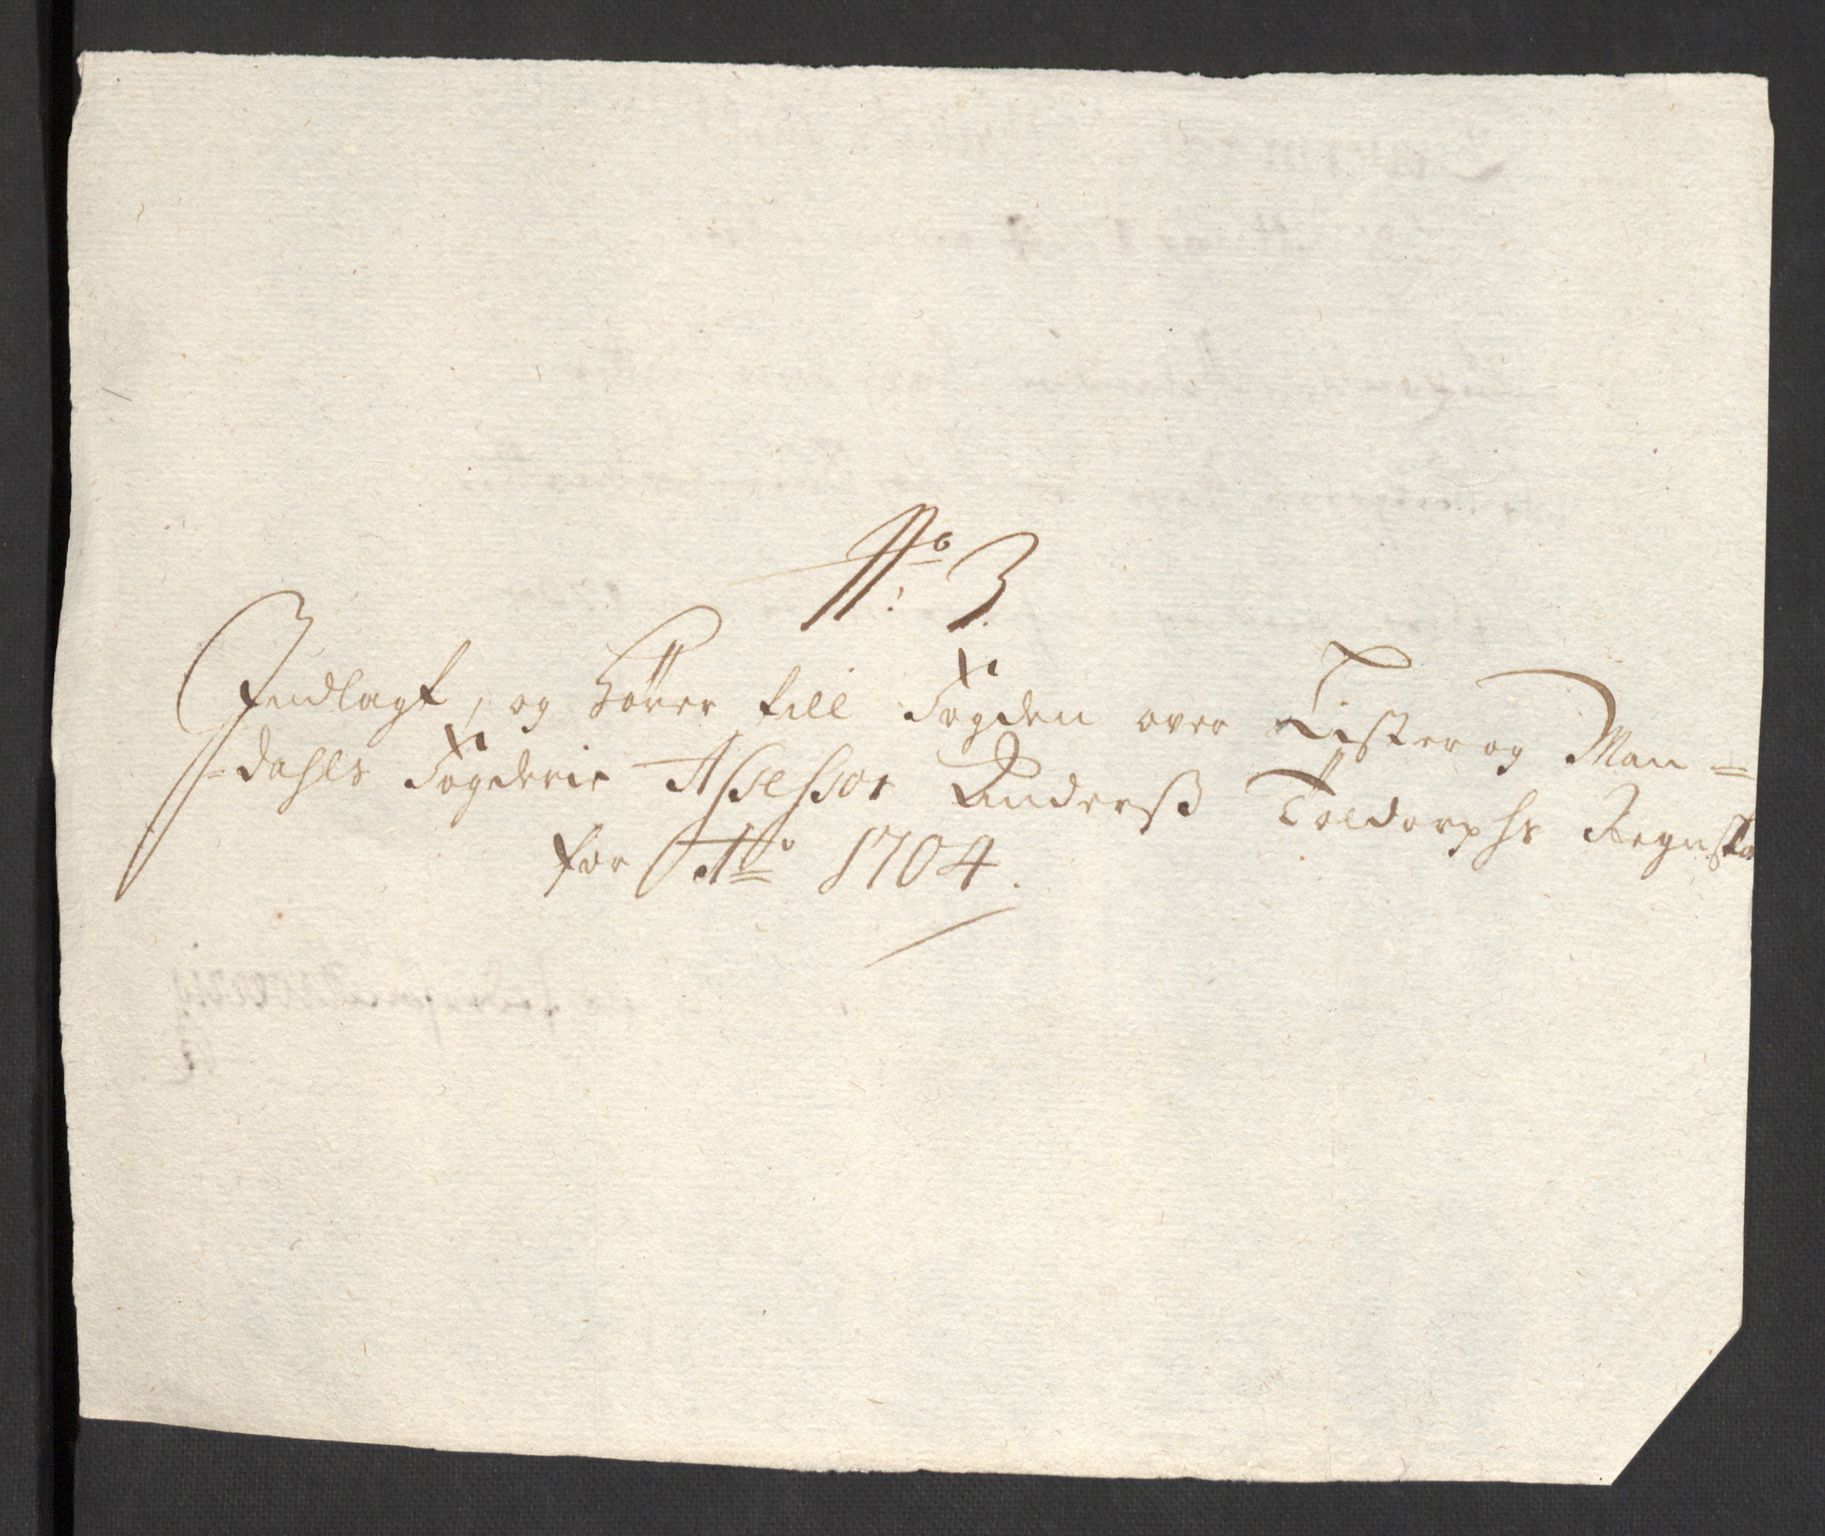 No: 3.
Indlagt, og hører till Fogden over Lister og Man=
=dahls Fogderie Assessor Anderß Toldorphs Regnsk
for Ao 1704.